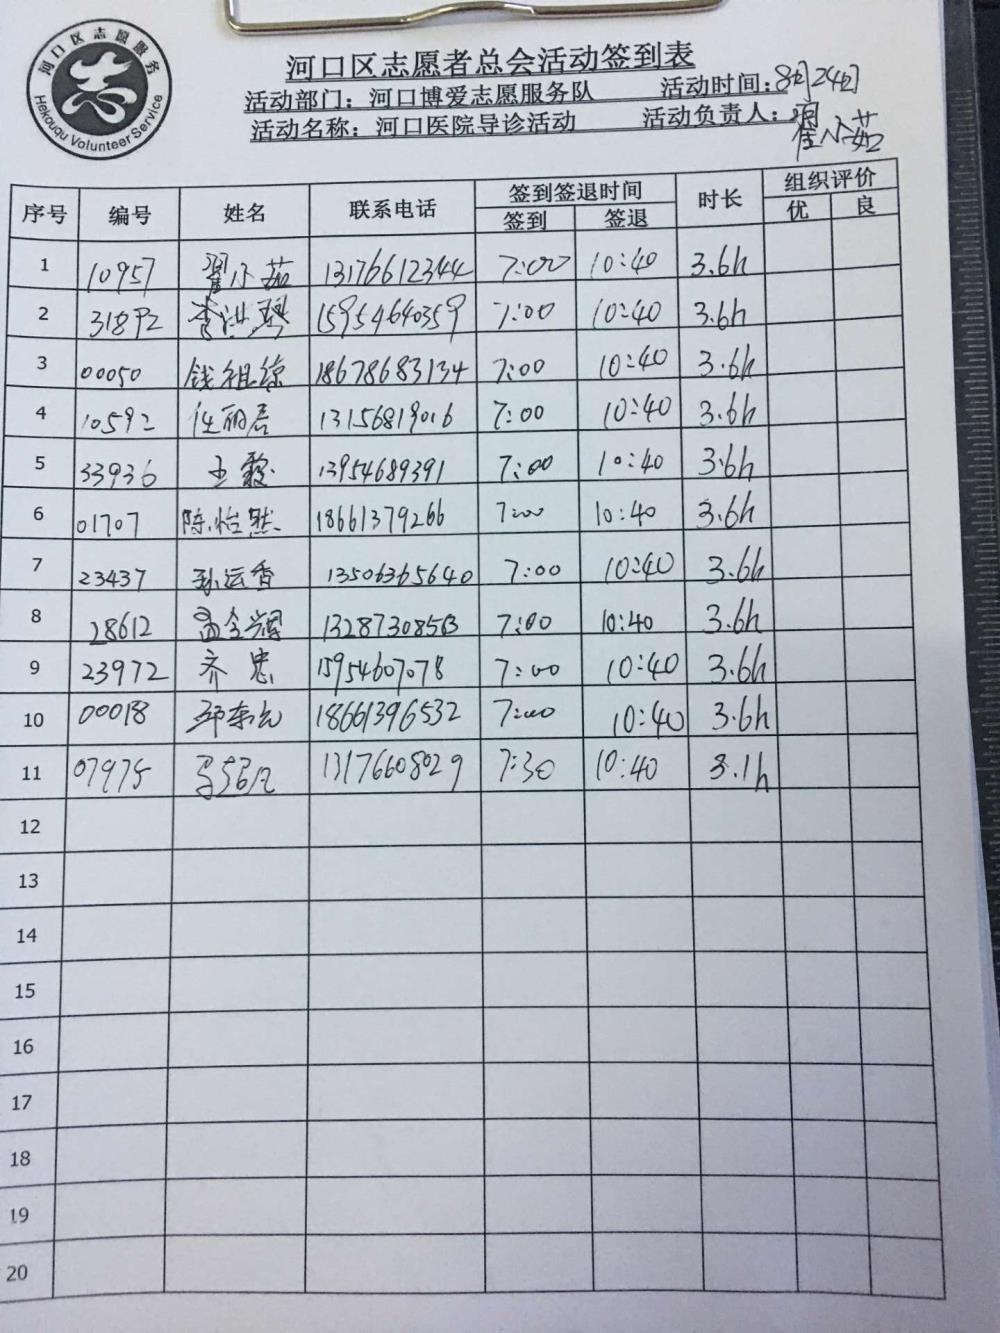 河口区志愿服务
Hekouqu Volunteer Service
河口区志愿者总会活动签到表
活动部门：河口博爱志愿服务队 活动时间：8月24日
活动名称：河口医院导诊活动 活动负责人：翟小茹
序号 编号 姓名 联系电话 签到签退时间 时长 组织评价
签到 签退 优 良
1 10957 翟小茹 13176612344 7:00 10:40 3.6h
2 31892 李洪琴 15954640359 7:00 10:40 3.6h
3 00050 钱祖琼 18678683134 7:00 10:40 3.6h
4 10592 任丽君 13156819016 7:00 10:40 3.6h
5 33936 王毅 13954689391 7:00 10:40 3.6h
6 01707 陈怡然 18661379266 7:00 10:40 3.6h
7 23437 孙运香 13506365640 7:00 10:40 3.6h
8 28612 孟令辉 7:00 10:40 3.6h
9 23972 齐忠 15954607078 7:00 10:40 3.6h
10 00018 18661396532 7:00 10:40 3.6h
11 07975 13176608029 7:30 10:40 3.1h
12
13
14
15
16
17
18
19
20